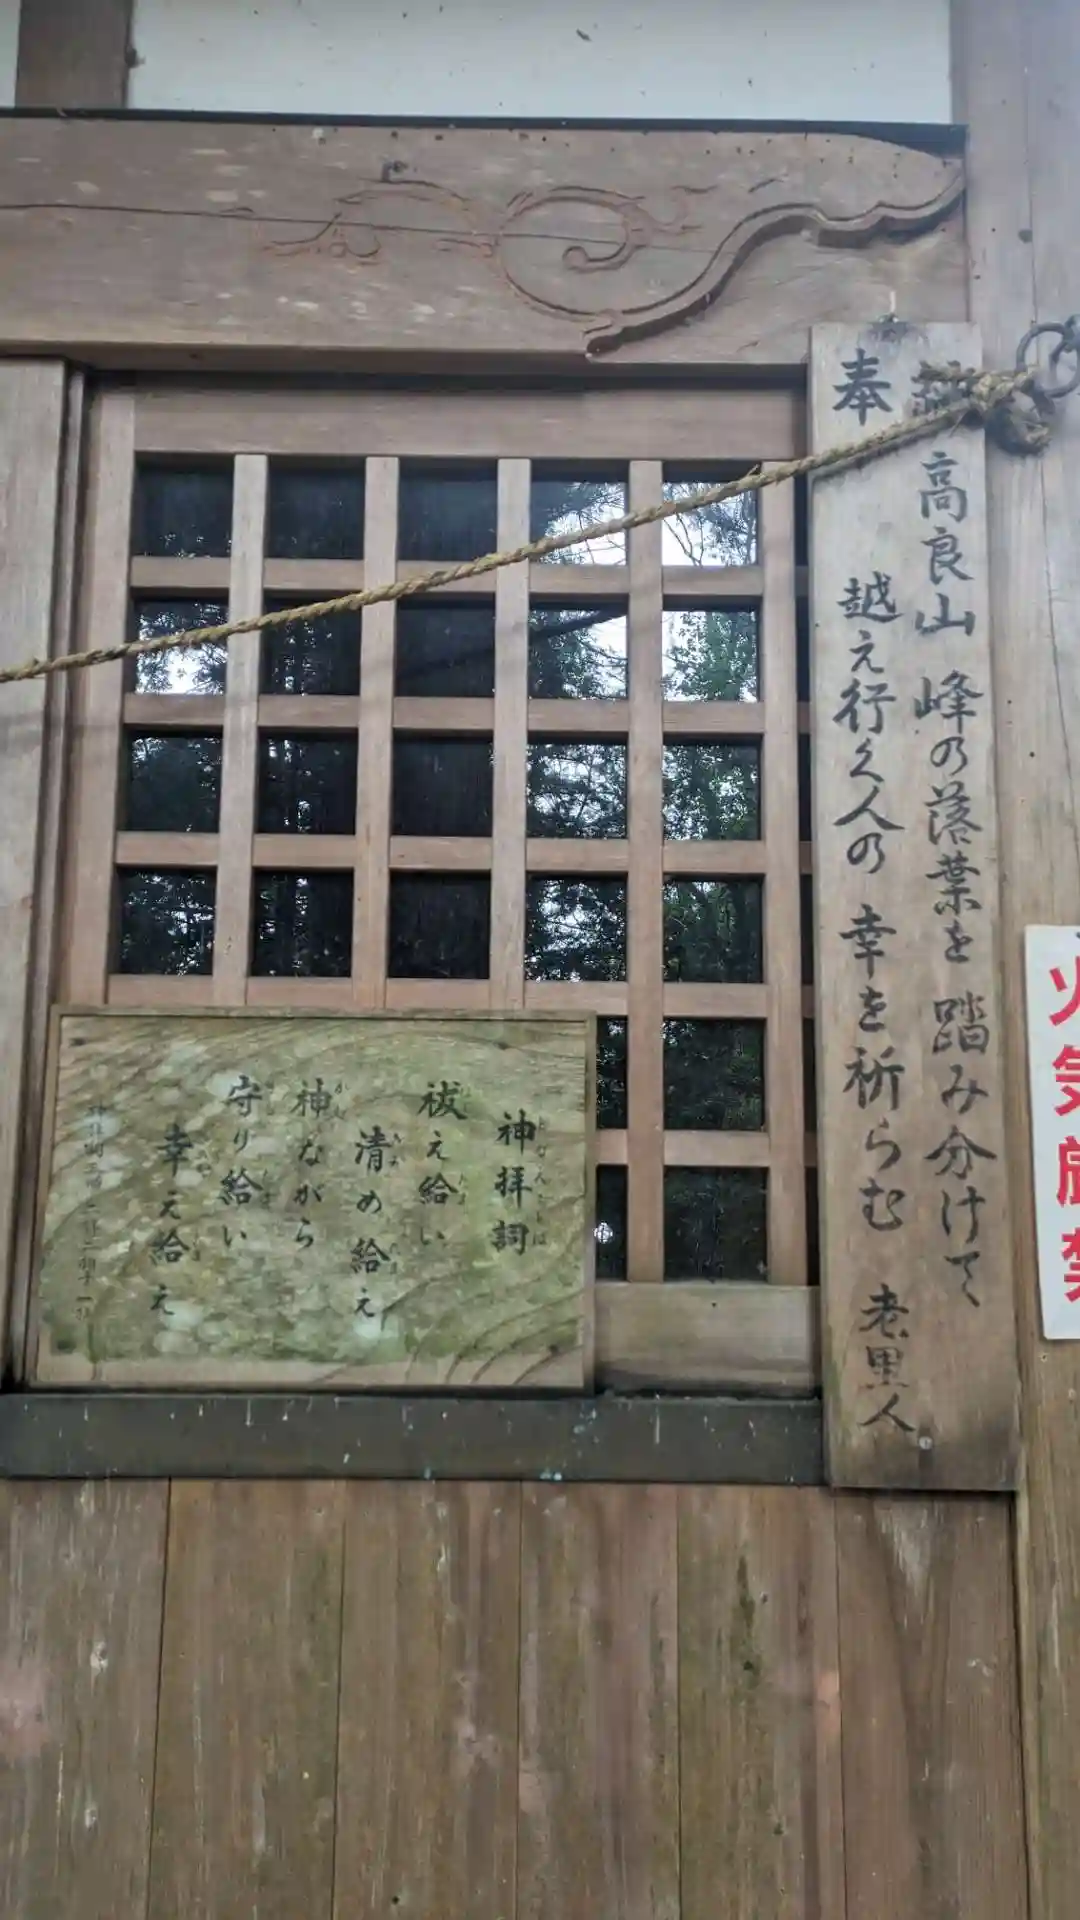 奉納
高良山 峰の落葉を 踏み分けて
越え行く人の 幸を祈らむ 老黒人
火気厳禁
神拝詞
祓え給い
清め給え
神ながら
守り給い
幸え給え